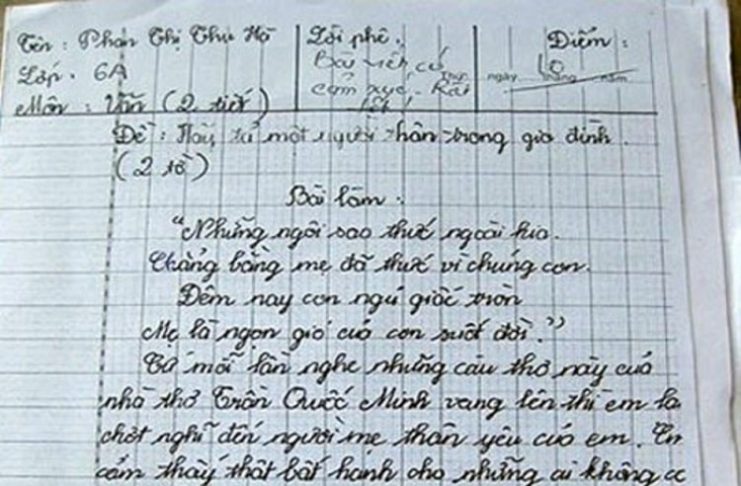 Tên : Phan Thị Thu Hà
Lớp : 6A
Môn : Văn (2 tiết)
Lời phê.
Bài viết có
cảm xúc. Rất
tốt!
Điểm :
10
Thứ ngày tháng năm
Đề : Hãy tả một người thân trong gia đình.
(2 tờ)
Bài làm :
"Những ngôi sao thức ngoài kia.
Chẳng bằng mẹ đã thức vì chúng con.
Đêm nay con ngủ giấc tròn
Mẹ là ngọn gió của con suốt đời."
Cứ mỗi lần nghe những câu thơ này của
nhà thơ Trần Quốc Minh vang lên thì em lại
chợt nghĩ đến người mẹ thân yêu của em. Em
cảm thấy thật bất hạnh cho những ai không